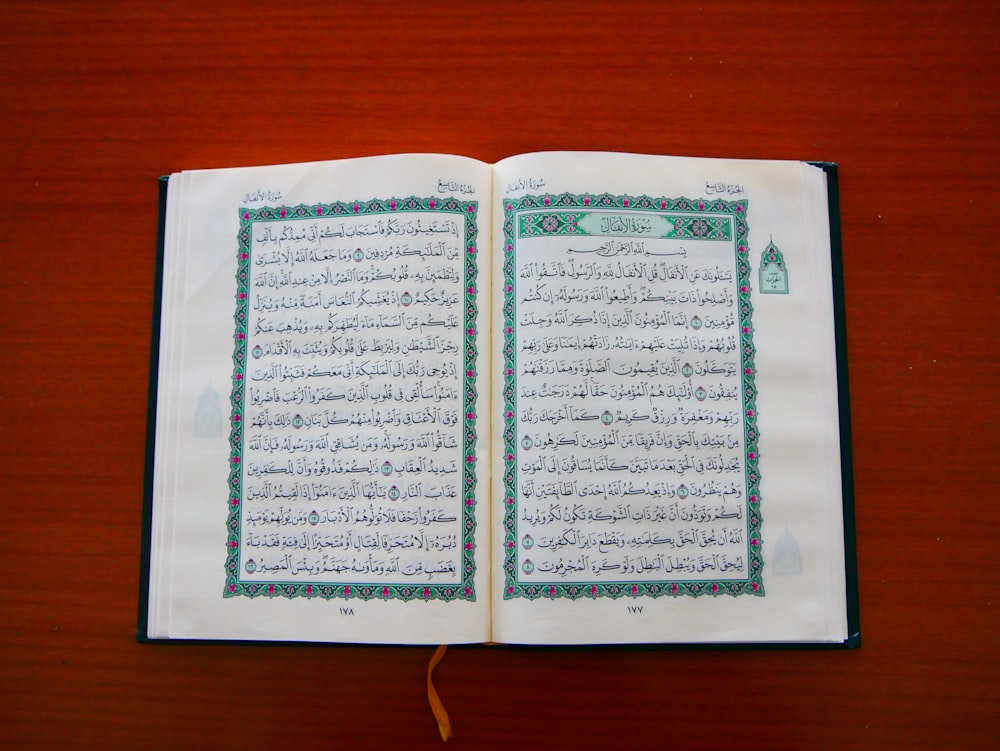 الجزء التاسع
سورة الأنفال
سُورَةُ الأَنفَالِ
بِسْمِ ٱللَّهِ ٱلرَّحْمَٰنِ ٱلرَّحِيمِ
يَسْـَٔلُونَكَ عَنِ ٱلْأَنفَالِ قُلِ ٱلْأَنفَالُ لِلَّهِ وَٱلرَّسُولِ فَٱتَّقُوا۟ ٱللَّهَ
وَأَصْلِحُوا۟ ذَاتَ بَيْنِكُمْ وَأَطِيعُوا۟ ٱللَّهَ وَرَسُولَهُۥٓ إِن كُنتُم
مُّؤْمِنِينَ ١ إِنَّمَا ٱلْمُؤْمِنُونَ ٱلَّذِينَ إِذَا ذُكِرَ ٱللَّهُ وَجِلَتْ
قُلُوبُهُمْ وَإِذَا تُلِيَتْ عَلَيْهِمْ ءَايَٰتُهُۥ زَادَتْهُمْ إِيمَٰنًا وَعَلَىٰ رَبِّهِمْ
يَتَوَكَّلُونَ ٢ ٱلَّذِينَ يُقِيمُونَ ٱلصَّلَوٰةَ وَمِمَّا رَزَقْنَٰهُمْ
يُنفِقُونَ ٣ أُو۟لَٰٓئِكَ هُمُ ٱلْمُؤْمِنُونَ حَقًّا لَّهُمْ دَرَجَٰتٌ عِندَ
رَبِّهِمْ وَمَغْفِرَةٌ وَرِزْقٌ كَرِيمٌ ٤ كَمَآ أَخْرَجَكَ رَبُّكَ
مِنۢ بَيْتِكَ بِٱلْحَقِّ وَإِنَّ فَرِيقًا مِّنَ ٱلْمُؤْمِنِينَ لَكَٰرِهُونَ ٥
يُجَٰدِلُونَكَ فِى ٱلْحَقِّ بَعْدَمَا تَبَيَّنَ كَأَنَّمَا يُسَاقُونَ إِلَى ٱلْمَوْتِ
وَهُمْ يَنظُرُونَ ٦ وَإِذْ يَعِدُكُمُ ٱللَّهُ إِحْدَى ٱلطَّآئِفَتَيْنِ أَنَّهَا
لَكُمْ وَتَوَدُّونَ أَنَّ غَيْرَ ذَاتِ ٱلشَّوْكَةِ تَكُونُ لَكُمْ وَيُرِيدُ
ٱللَّهُ أَن يُحِقَّ ٱلْحَقَّ بِكَلِمَٰتِهِۦ وَيَقْطَعَ دَابِرَ ٱلْكَٰفِرِينَ ٧
لِيُحِقَّ ٱلْحَقَّ وَيُبْطِلَ ٱلْبَٰطِلَ وَلَوْ كَرِهَ ٱلْمُجْرِمُونَ ٨
١٧٧
الحزب
١٨
الجزء التاسع
سورة الأنفال
إِذْ تَسْتَغِيثُونَ رَبَّكُمْ فَٱسْتَجَابَ لَكُمْ أَنِّى مُمِدُّكُم بِأَلْفٍ
مِّنَ ٱلْمَلَٰٓئِكَةِ مُرْدِفِينَ ٩ وَمَا جَعَلَهُ ٱللَّهُ إِلَّا بُشْرَىٰ
وَلِتَطْمَئِنَّ بِهِۦ قُلُوبُكُمْ وَمَا ٱلنَّصْرُ إِلَّا مِنْ عِندِ ٱللَّهِ إِنَّ ٱللَّهَ
عَزِيزٌ حَكِيمٌ ١٠ إِذْ يُغَشِّيكُمُ ٱلنُّعَاسَ أَمَنَةً مِّنْهُ وَيُنَزِّلُ
عَلَيْكُم مِّنَ ٱلسَّمَآءِ مَآءً لِّيُطَهِّرَكُم بِهِۦ وَيُذْهِبَ عَنكُمْ
رِجْزَ ٱلشَّيْطَٰنِ وَلِيَرْبِطَ عَلَىٰ قُلُوبِكُمْ وَيُثَبِّتَ بِهِ ٱلْأَقْدَامَ ١١
إِذْ يُوحِى رَبُّكَ إِلَى ٱلْمَلَٰٓئِكَةِ أَنِّى مَعَكُمْ فَثَبِّتُوا۟ ٱلَّذِينَ
ءَامَنُوا۟ سَأُلْقِى فِى قُلُوبِ ٱلَّذِينَ كَفَرُوا۟ ٱلرُّعْبَ فَٱضْرِبُوا۟
فَوْقَ ٱلْأَعْنَاقِ وَٱضْرِبُوا۟ مِنْهُمْ كُلَّ بَنَانٍ ١٢ ذَٰلِكَ بِأَنَّهُمْ
شَآقُّوا۟ ٱللَّهَ وَرَسُولَهُۥ وَمَن يُشَاقِقِ ٱللَّهَ وَرَسُولَهُۥ فَإِنَّ ٱللَّهَ
شَدِيدُ ٱلْعِقَابِ ١٣ ذَٰلِكُمْ فَذُوقُوهُ وَأَنَّ لِلْكَٰفِرِينَ
عَذَابَ ٱلنَّارِ ١٤ يَٰٓأَيُّهَا ٱلَّذِينَ ءَامَنُوٓا۟ إِذَا لَقِيتُمُ ٱلَّذِينَ
كَفَرُوا۟ زَحْفًا فَلَا تُوَلُّوهُمُ ٱلْأَدْبَارَ ١٥ وَمَن يُوَلِّهِمْ يَوْمَئِذٍ
دُبُرَهُۥٓ إِلَّا مُتَحَرِّفًا لِّقِتَالٍ أَوْ مُتَحَيِّزًا إِلَىٰ فِئَةٍ فَقَدْ بَآءَ
بِغَضَبٍ مِّنَ ٱللَّهِ وَمَأْوَىٰهُ جَهَنَّمُ وَبِئْسَ ٱلْمَصِيرُ ١٦
١٧٨